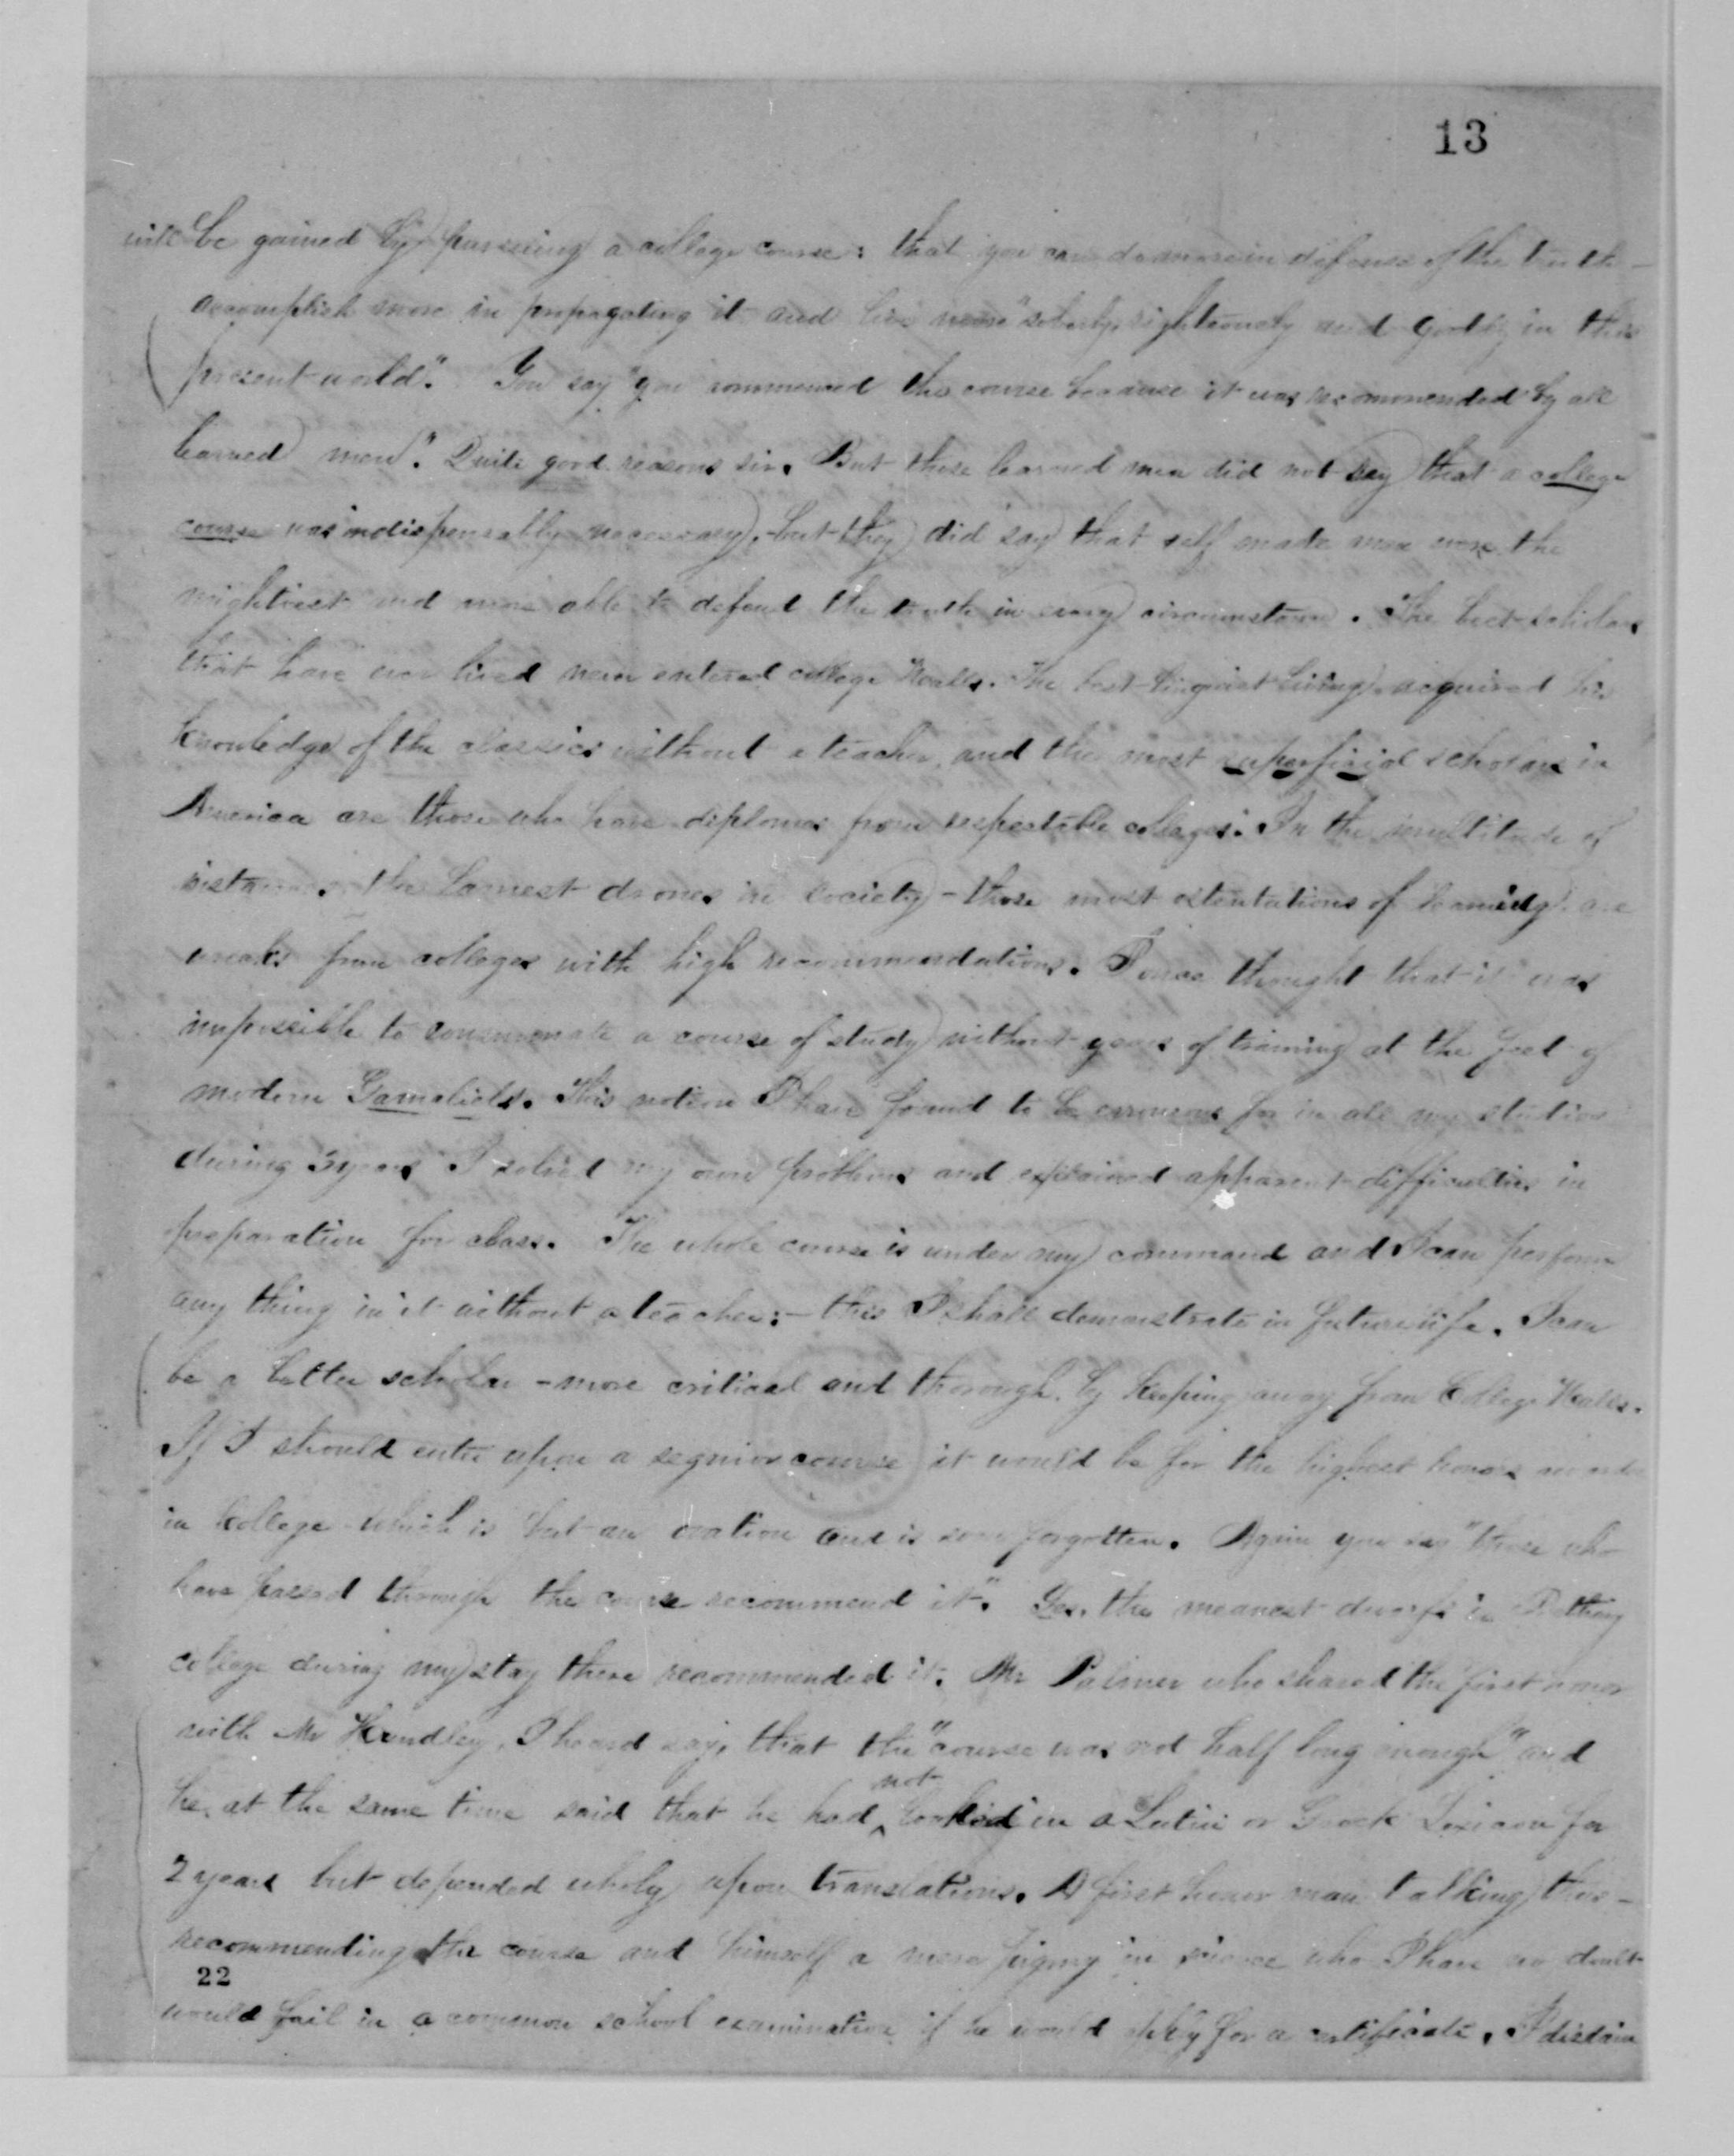 13
will be gained by pursuing a college course: that you can do more in defense of the truth—
accomplish more in propagating it and live more "soberly, righteously and Godly in this
present world". You say "you commenced the course because it was recommended by all
learned men". Quite good reasons sir. But those learned men did not say that a college
course was indispensably necessary, but they did say that self made men were the
mightiest and more able to defend the truth in every circumstance. The best scholars
that have ever lived never entered college Walls. The best linguist living acquired his
knowledge of the classics without a teacher, and the most superficial scholars in
America are those who have diplomas from respectable colleges. In the multitude of
instances the lamest drones in society - those most ostentatious of learning are
from colleges with high recommendations. I once thought that it was
impossible to consummate a course of study without years of training at the feet of
modern Gamaliels. This notion I have found to be erroneous for in all my studies
during 3 years I solved my own problems and explained apparent difficulties in
preparation for class. The whole course is under my command and I can perform
any thing in it without a teacher:— this I shall demonstrate in future life. I can
be a better scholar - more critical and thorough by keeping away from College Walls.
If I should enter upon a segnior course it would be for the highest honors
in College which is but an ovation and is soon forgotten. Again you say "those who
have passed through the course recommend it". Yes. the meanest dwarfs in Bethany
college during my stay there recommended it. Mr Palmer who shared the first honor
with Mr Hundley, I heard say, that the "course was not half long enough" and
he at the same time said that he had not looked in a Latin or Greek Lexicon for
2 years but depended wholy upon translations. A first honor man talking thus—
recommending the course and himself a mere pigmy in science who I have no doubt
22
would fail in a common school examination if he would apply for a certificate. I disdain